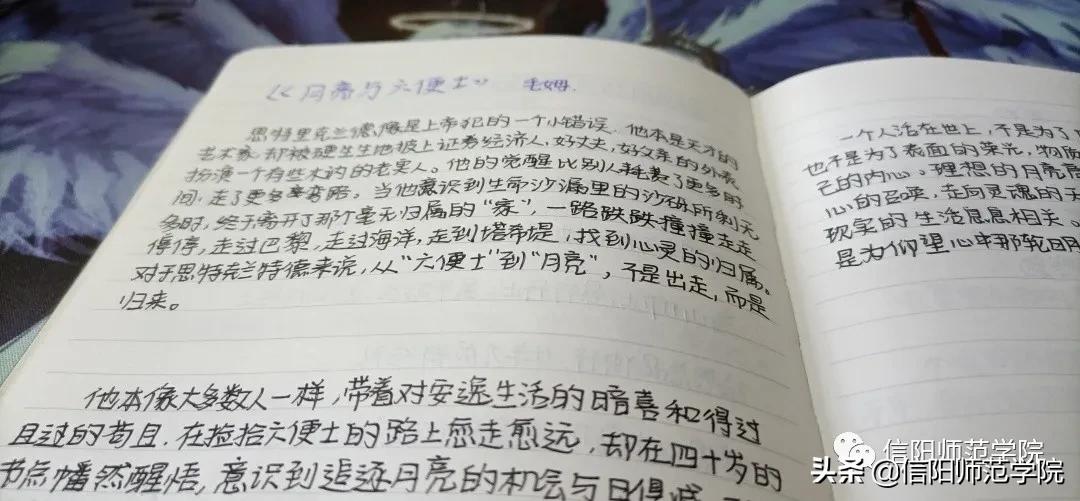 《月亮与六便士》 毛姆.
思特里克兰德,像是上帝犯的一个小错误.他本是天才的
艺术家,却被硬生生地披上证券经济人,好丈夫,好父亲的外表
扮演一个有些木讷的老实人。他的觉醒比别人耗费了更多的时
间,走了更多弯路。当他意识到生命沙漏里的沙砾所剩无
多时,终于离开了那个毫无归属的“家”,一路跌跌撞撞走走
停停,走过巴黎,走过海洋,走到塔希提,找到心灵的归属。
对于思特克兰特德来说,从“六便士”到“月亮”,不是出走,而是
归来。
他本像大多数人一样,带着对安逸生活的暗喜和得过
且过的苟且,在捡拾六便士的路上愈走愈远,却在四十岁的
节点幡然醒悟,意识到追逐月亮的机会与日俱减
一个人活在世上,不是为了
也不是为了表面的荣光,物质
己的内心。理想的月亮
心的召唤,走向灵魂的
现实的生活息息相关。
是为仰望心中那轮明月
信阳师范学院
头条@信阳师范学院